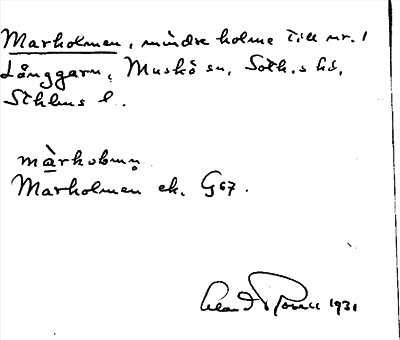 Marholmen, mindre holme till nr. 1
Långgarn, Muskö sn, Soth.s hd,
Sthlms l.
màrholmn̥
Marholmen ek. G67.
1931